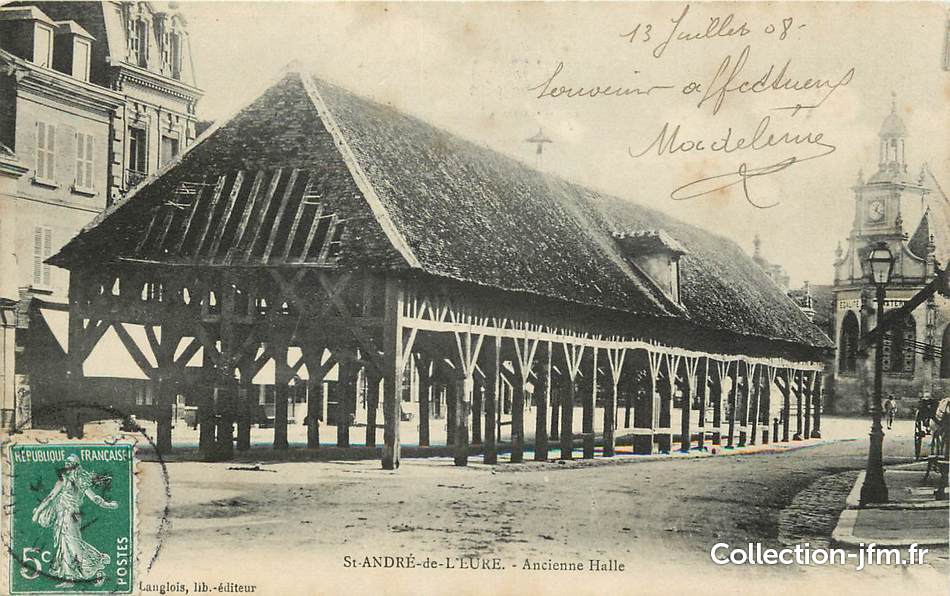 13 Juillet 08-
Souvenir affectueux
Madeleine
EGALITE
RÉPUBLIQUE FRANÇAISE
5c POSTES
St-ANDRÉ-de-L'EURE. - Ancienne Halle
Langlois, lib.-éditeur
Collection-jfm.fr